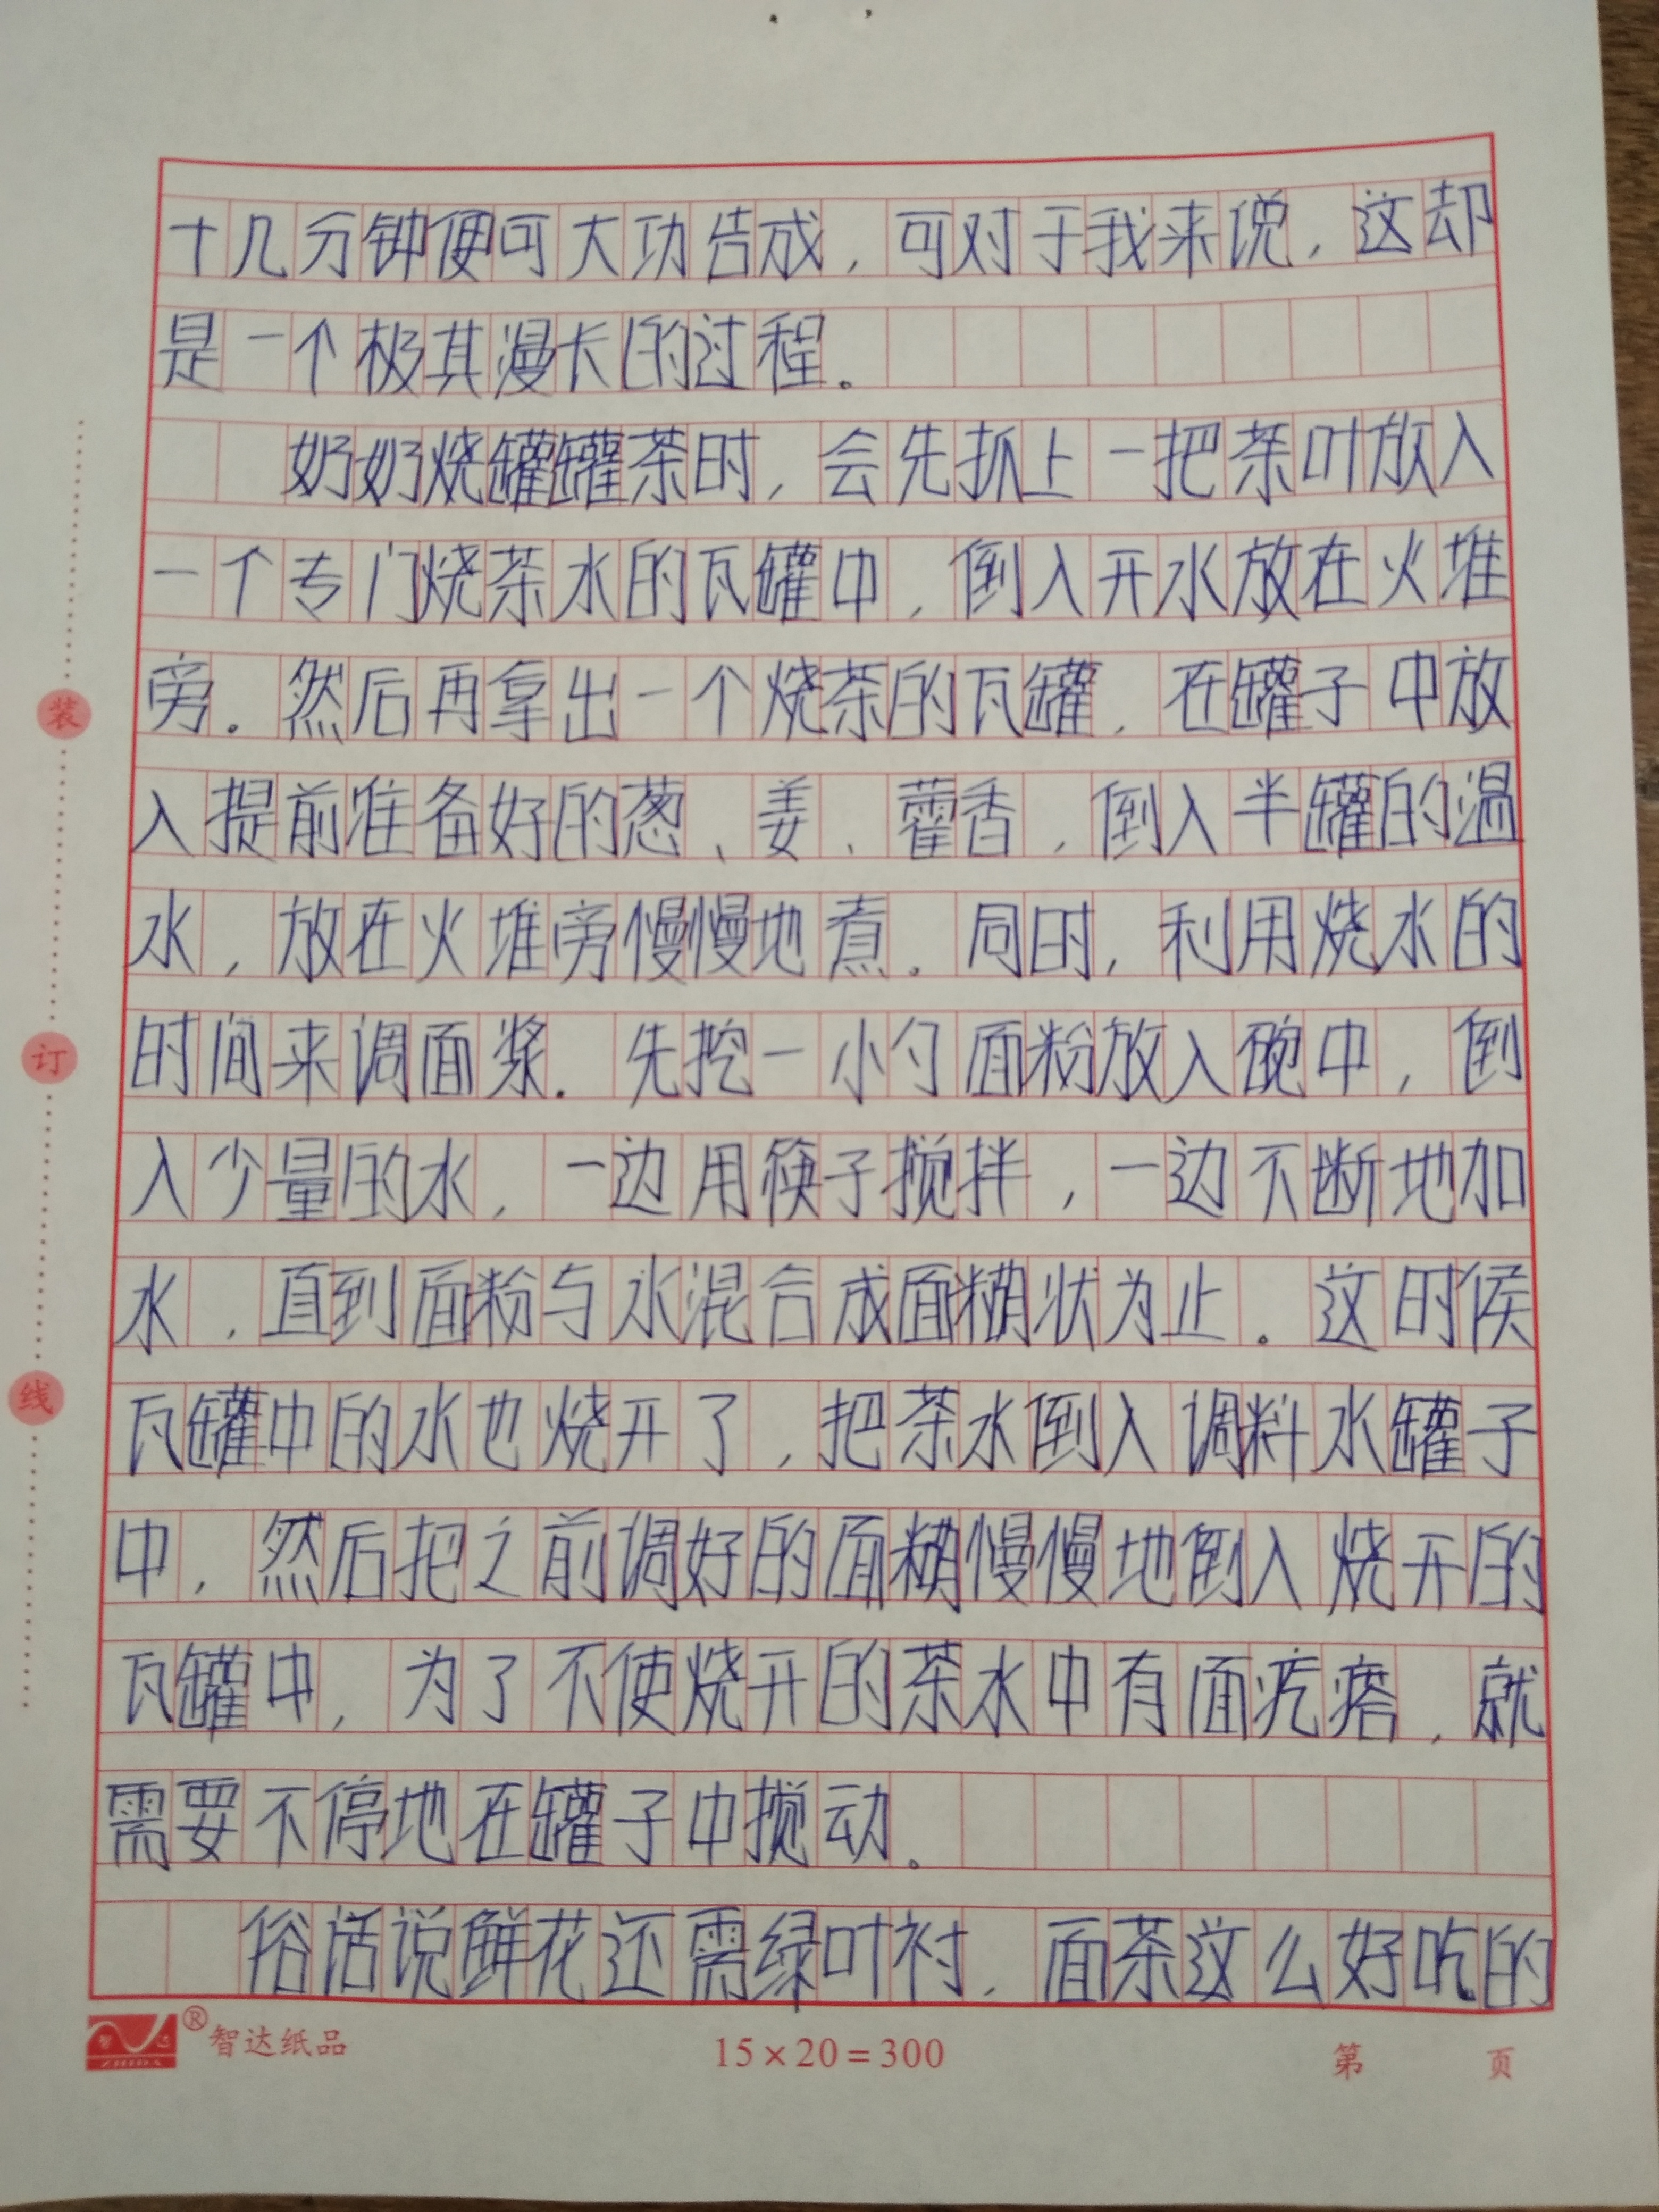 十几分钟便可大功告成，可对于我来说，这却
是一个极其漫长的过程。
奶奶烧罐罐茶时，会先抓上一把茶叶放入
一个专门烧茶水的瓦罐中，倒入开水放在火堆
旁。然后再拿出一个烧茶的瓦罐，在罐子中放
入提前准备好的葱、姜、藿香，倒入半罐的温
水，放在火堆旁慢慢地煮。同时，利用烧水的
时间来调面浆。先挖一小勺面粉放入碗中，倒
入少量的水，一边用筷子搅拌，一边不断地加
水，直到面粉与水混合成面糊状为止。这时候
瓦罐中的水也烧开了，把茶水倒入调料水罐子
中，然后把之前调好的面糊慢慢地倒入烧开的
瓦罐中，为了不使烧开的茶水中有面疙瘩，就
需要不停地在罐子中搅动。
俗话说鲜花还需绿叶衬，面茶这么好吃的
装
订
线
智达 ZHIDA ® 智达纸品 15×20=300 第 页